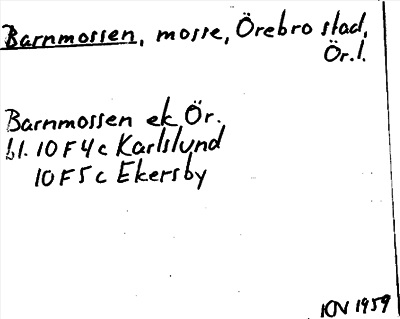 Barnmossen, mosse, Örebro stad,
Ör.l.
Barnmossen ek Ör.
bl. 10F4c Karlslund
10F5c Ekersby
KV 1959